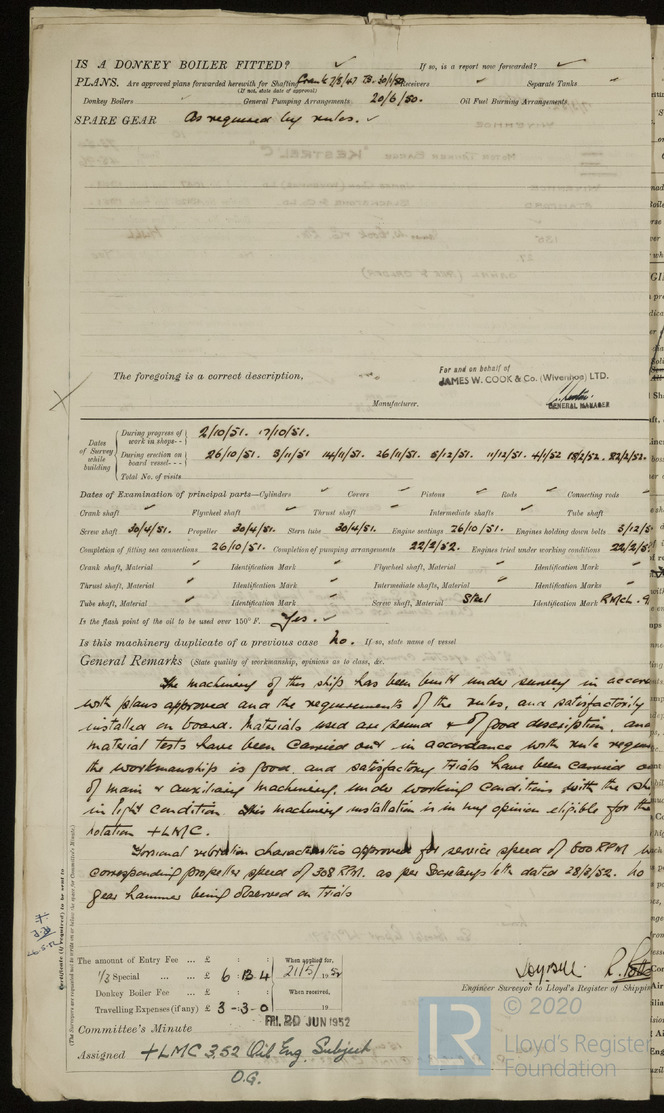 IS A DONKEY BOILER FITTED? ✓ If so, is a report now forwarded? ✓
PLANS. Are approved plans forwarded herewith for Shafting Crank 7/8/47 TB. 30/1/50 Receivers ✓ Separate Tanks ✓
(If not, state date of approval)
Donkey Boilers ✓ General Pumping Arrangements 20/6/50. Oil Fuel Burning Arrangements
SPARE GEAR As required by rules. ✓
The foregoing is a correct description,
For and on behalf of
JAMES W. COOK & Co. (Wivenhoe) LTD.
Manufacturer.
GENERAL MANAGER
Dates of Survey while building
During progress of work in shops - - 2/10/51. 17/10/51.
During erection on board vessel - - - 26/10/51. 3/11/51 14/11/51. 26/11/51. 5/12/51. 11/12/51. 4/1/52 18/2/52. 22/2/52.
Total No. of visits
Dates of Examination of principal parts—Cylinders ✓ Covers ✓ Pistons ✓ Rods ✓ Connecting rods ✓
Crank shaft ✓ Flywheel shaft ✓ Thrust shaft ✓ Intermediate shafts ✓ Tube shaft ✓
Screw shaft 30/4/51. Propeller 30/4/51. Stern tube 30/4/51. Engine seatings 26/10/51. Engines holding down belts 5/12/5
Completion of fitting sea connections 26/10/51. Completion of pumping arrangements 22/2/52. Engines tried under working conditions 22/2/5
Crank shaft, Material ✓ Identification Mark ✓ Flywheel shaft, Material ✓ Identification Mark ✓
Thrust shaft, Material ✓ Identification Mark ✓ Intermediate shafts, Material ✓ Identification Marks ✓
Tube shaft, Material ✓ Identification Mark ✓ Screw shaft, Material Steel Identification Mark RMCL. 9
Is the flash point of the oil to be used over 150° F. Yes. ✓
Is this machinery duplicate of a previous case No. If so, state name of vessel
General Remarks (State quality of workmanship, opinions as to class, &c.
The machinery of this ship has been built under survey in accor
with plans approved and the requirements of the rules, and satisfactorily
installed on board. Materials used are sound & of good description, and
material tests have been carried out in accordance with rule requir
the workmanship is good, and satisfactory trials have been carried o
of main & auxiliary machinery, under working conditions with the sh
in light condition. This machinery installation is in my opinion eligible for the
notation +LMC.
Torsional vibration characteristics approved for service speed of 600 RPM
corresponding propeller speed of 308 RPM. as per Secretarys lett dated 28/2/52. No
gear hammer being observed on trials
Certificate (if required) to be sent to
(The Surveyors are requested not to write on or below the space for Committee's Minute.)
The amount of Entry Fee ... £ : :
1/3 Special ... £ 6 : 13 : 4
Donkey Boiler Fee ... £ : :
Travelling Expenses (if any) £ 3 - 3 - 0
When applied for,
21/5/1952
When received,
19
Engineer Surveyor to Lloyd's Register of Shippin
FRI. 20 JUN 1952
Committee's Minute
Assigned +LMC 3.52 Oil Eng. Subject
O.G.
© 2020
LR
Lloyd's Register
Foundation